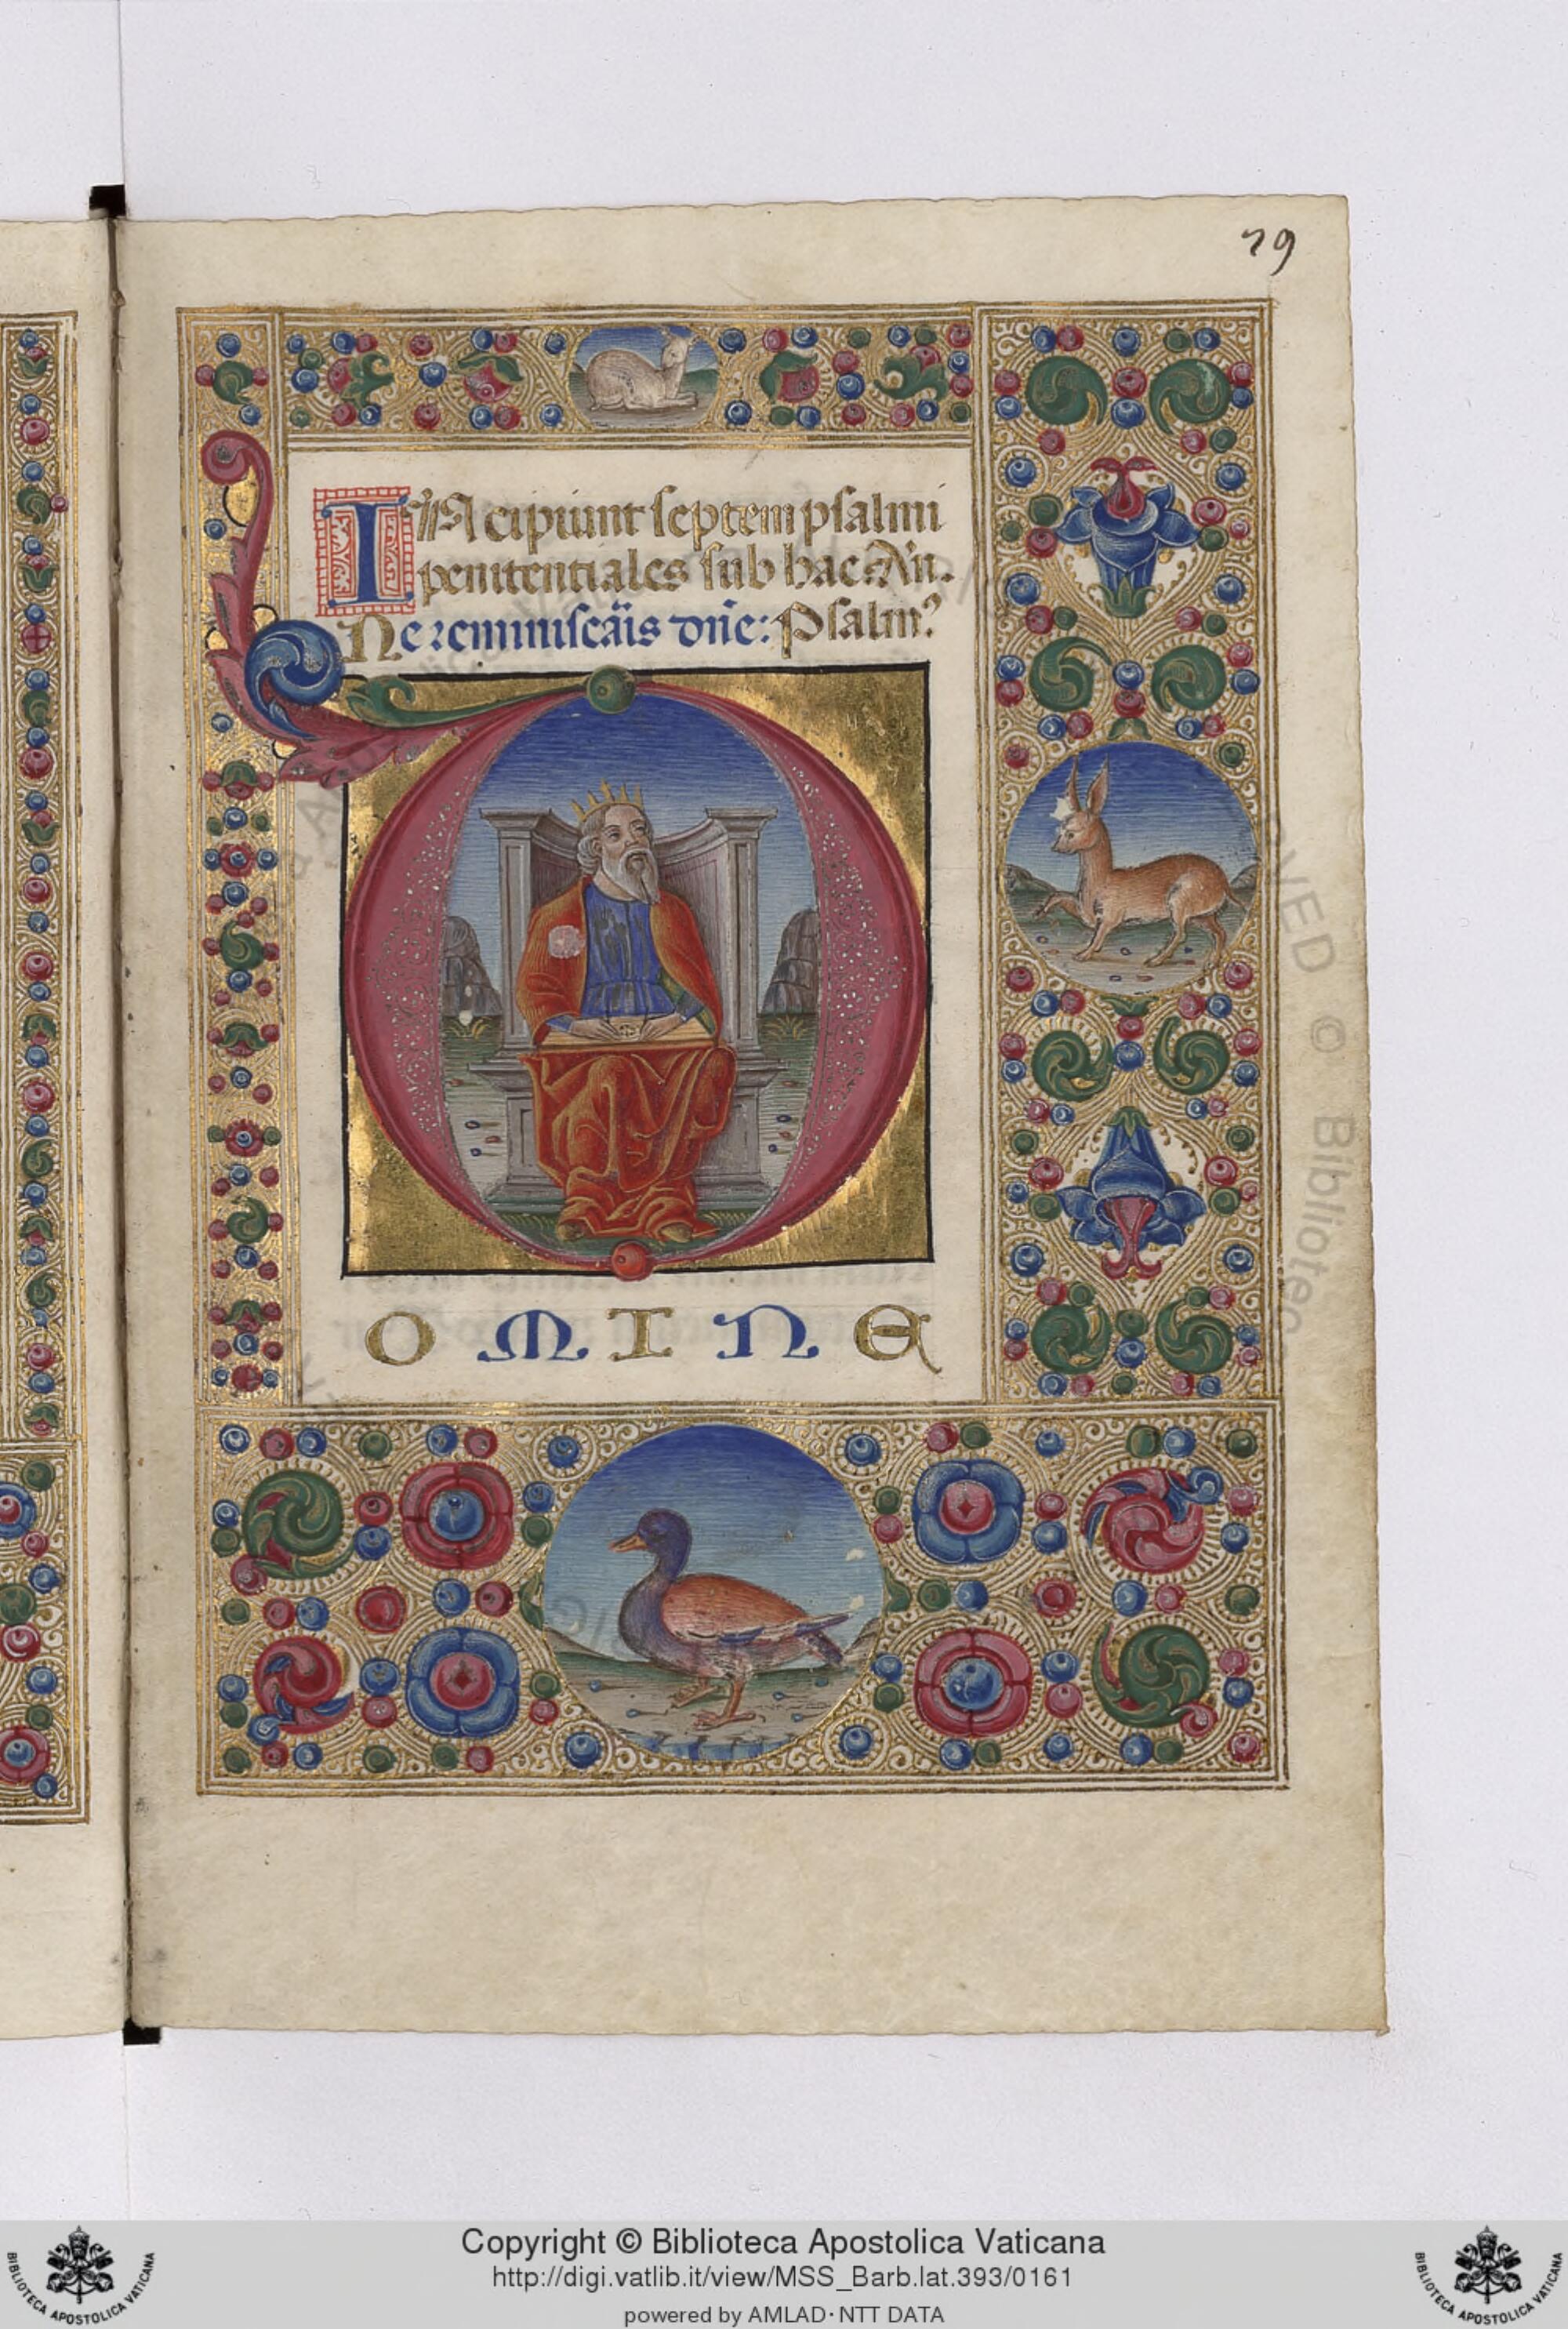 79
INcipiunt septem psalmi
penitentiales sub hac. Añ.
Ne reminiscãis dñe: Psalmꝰ
D
O M I N E
Copyright © Biblioteca Apostolica Vaticana
http://digi.vatlib.it/view/MSS_Barb.lat.393/0161
powered by AMLAD·NTT DATA
BIBLIOTECA APOSTOLICA VATICANA
BIBLIOTECA APOSTOLICA VATICANA